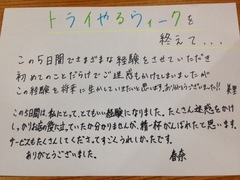 トライやるウィークを
終えて...
この5日間でさまざまな経験をさせていただき
初めてのことだらけでご迷惑もかけてしまいましたが
この経験を将来に生かしていきたいと思います。ありがとうございました!!
この5日間は、私にとって、とてもいい経験になりました。たくさん迷惑をかけ
しっかりお店の役に立っていたか分かりませんが、精一杯がんばれたと思います。
サービスもたくさんしてくださってすごくうれしかったです。
ありがとうございました。